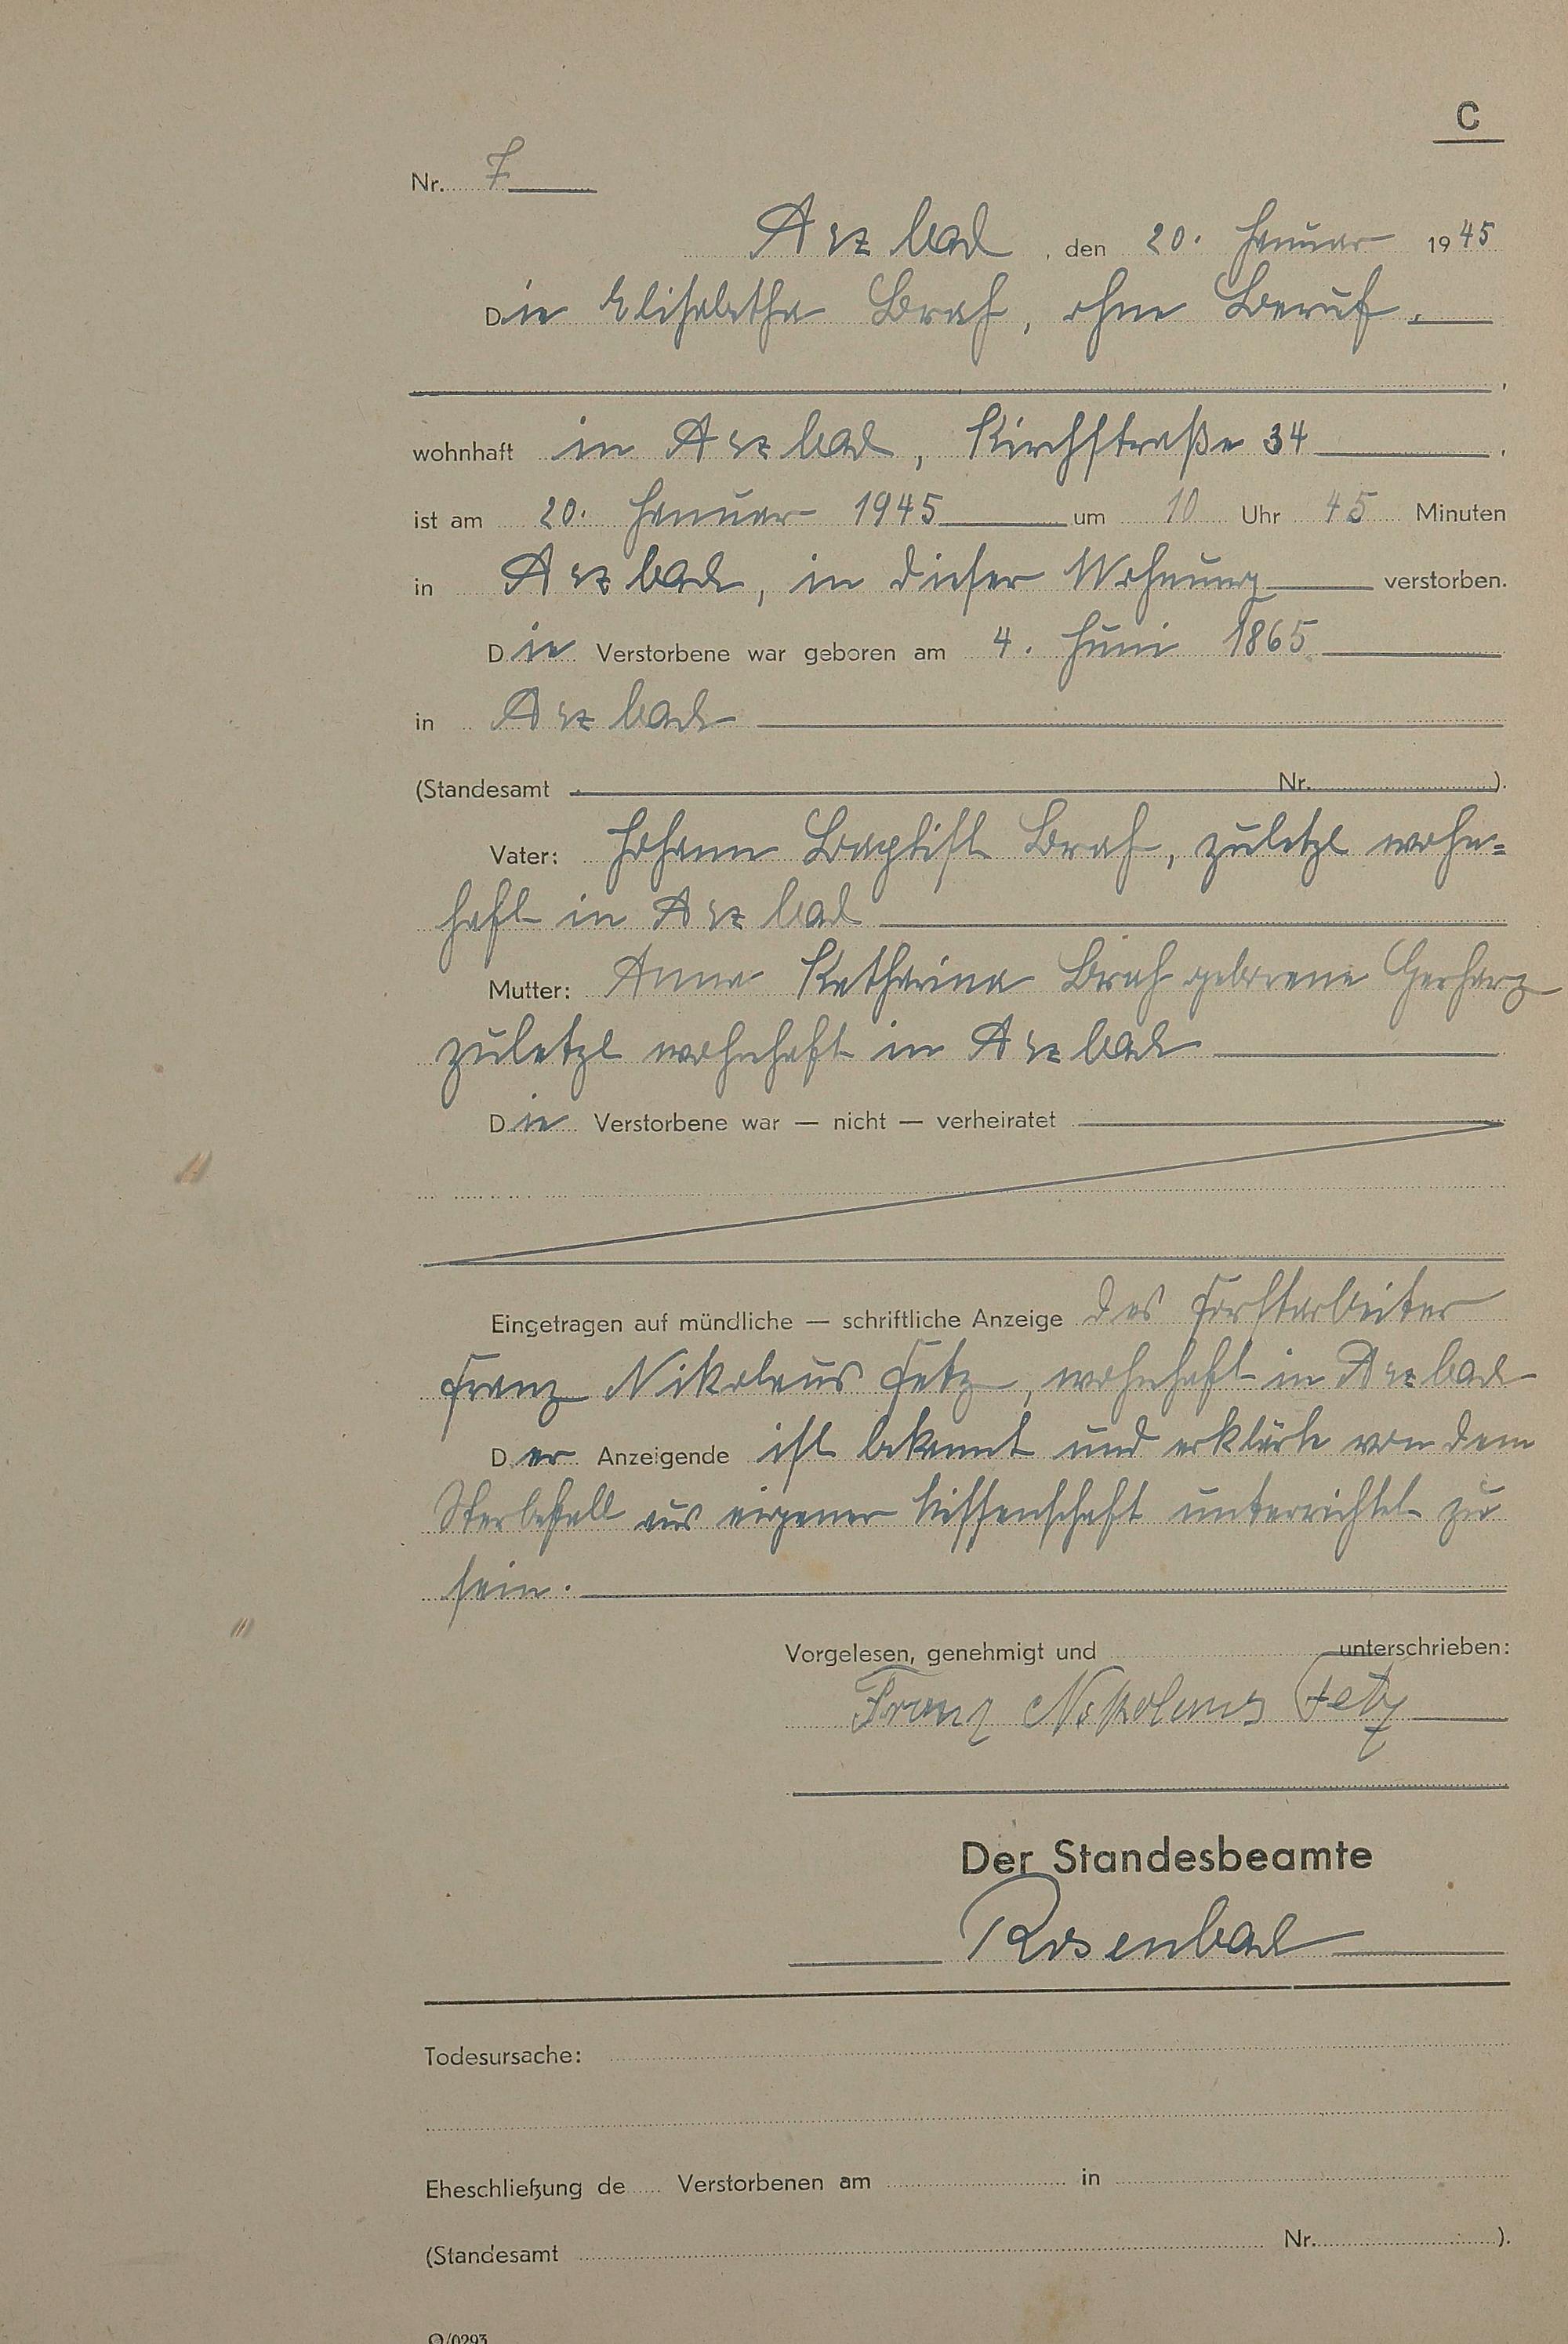 C
Nr. 7
Arzbach, den 20. Januar 1945
Die Elisabetha Brah, ohne Beruf.
wohnhaft in Arzbach, Kirchstraße 34.
ist am 20. Januar 1945 um 10 Uhr 45 Minuten
in Arzbach, in dieser Wohnung verstorben.
Die Verstorbene war geboren am 4. Juni 1865
in Arzbach
(Standesamt Nr. ).
Vater: Johann Baptist Brah, zuletzt wohn=
haft in Arzbach
Mutter: Anna Katharina Brah geborene Gerharz
zuletzt wohnhaft in Arzbach
Die Verstorbene war — nicht — verheiratet
Eingetragen auf mündliche — schriftliche Anzeige des Forstarbeiter
Franz Nikolaus Fetz, wohnhaft in Arzbach
Der Anzeigende ist bekannt und erklärte von dem
Sterbefall aus eigener Wissenschaft unterrichtet zu
sein.
Vorgelesen, genehmigt und unterschrieben:
Franz Nikolaus Fetz
Der Standesbeamte
Rosenbach
Todesursache:
Eheschließung de Verstorbenen am in
(Standesamt Nr. ).